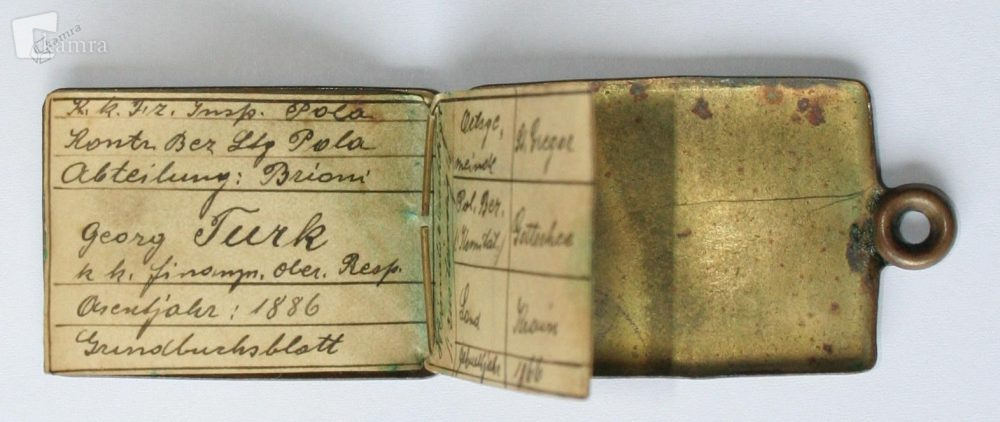 kamra
K. k. Fz. Insp. Pola
Kontr. Bez Ltg Pola
Abteilung: Brioni
Georg Turk
k. k. finanzw. Ober. Resp.
Asentjahr: 1886
Grundbuchsblatt
Ortsge,
meinde
St. Gregor
Pol. Bez.
/Komitat/
Gottschee
Land
Krain
Geburtsjahr
1866